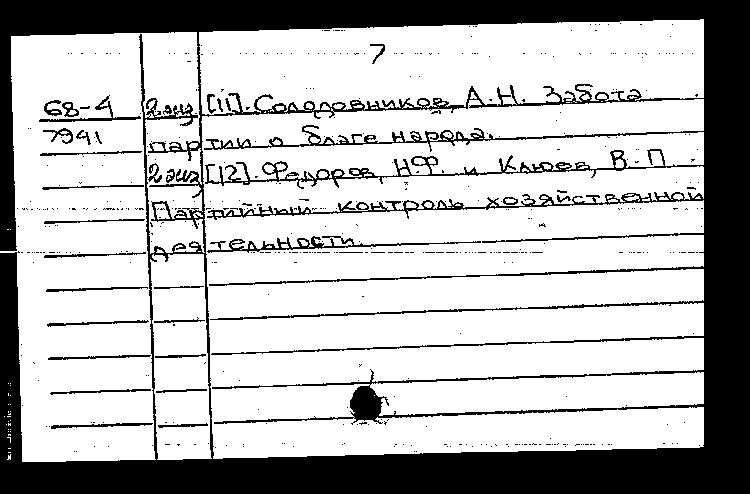 7
68-4 2 экз [11]. Солодовников, А.Н. Забота
7941 партии о благе народа.
2 экз [12]. Федоров, Н.Ф. и Клюев, В.П.
Партийный контроль хозяйственной
деятельности.